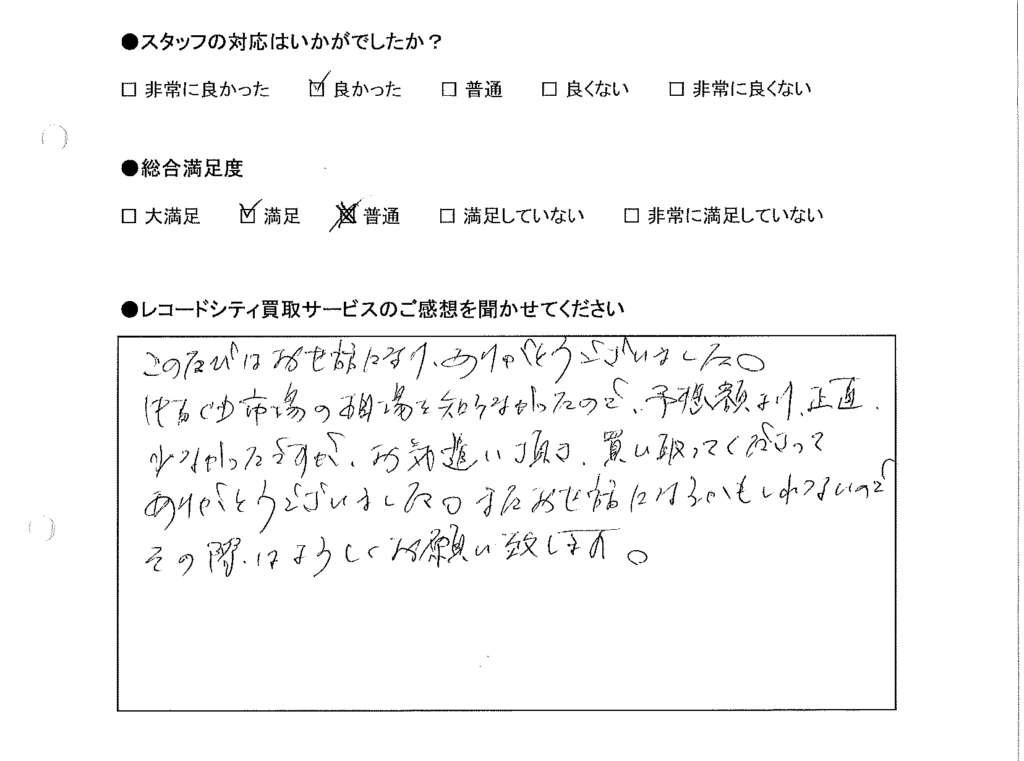 ●スタッフの対応はいかがでしたか？
□ 非常に良かった ☑ 良かった □ 普通 □ 良くない □ 非常に良くない
●総合満足度
□ 大満足 ☑ 満足 普通 □ 満足していない □ 非常に満足していない
●レコードシティ買取サービスのご感想を聞かせてください
このたびはお世話になり、ありがとうございました。
市場の相場を知らなかったので、予想額より、正直、
少なかったですが、お気遣い頂き、買い取ってくださって
ありがとうございました。またお世話になるかもしれないので
その際はよろしくお願い致します。